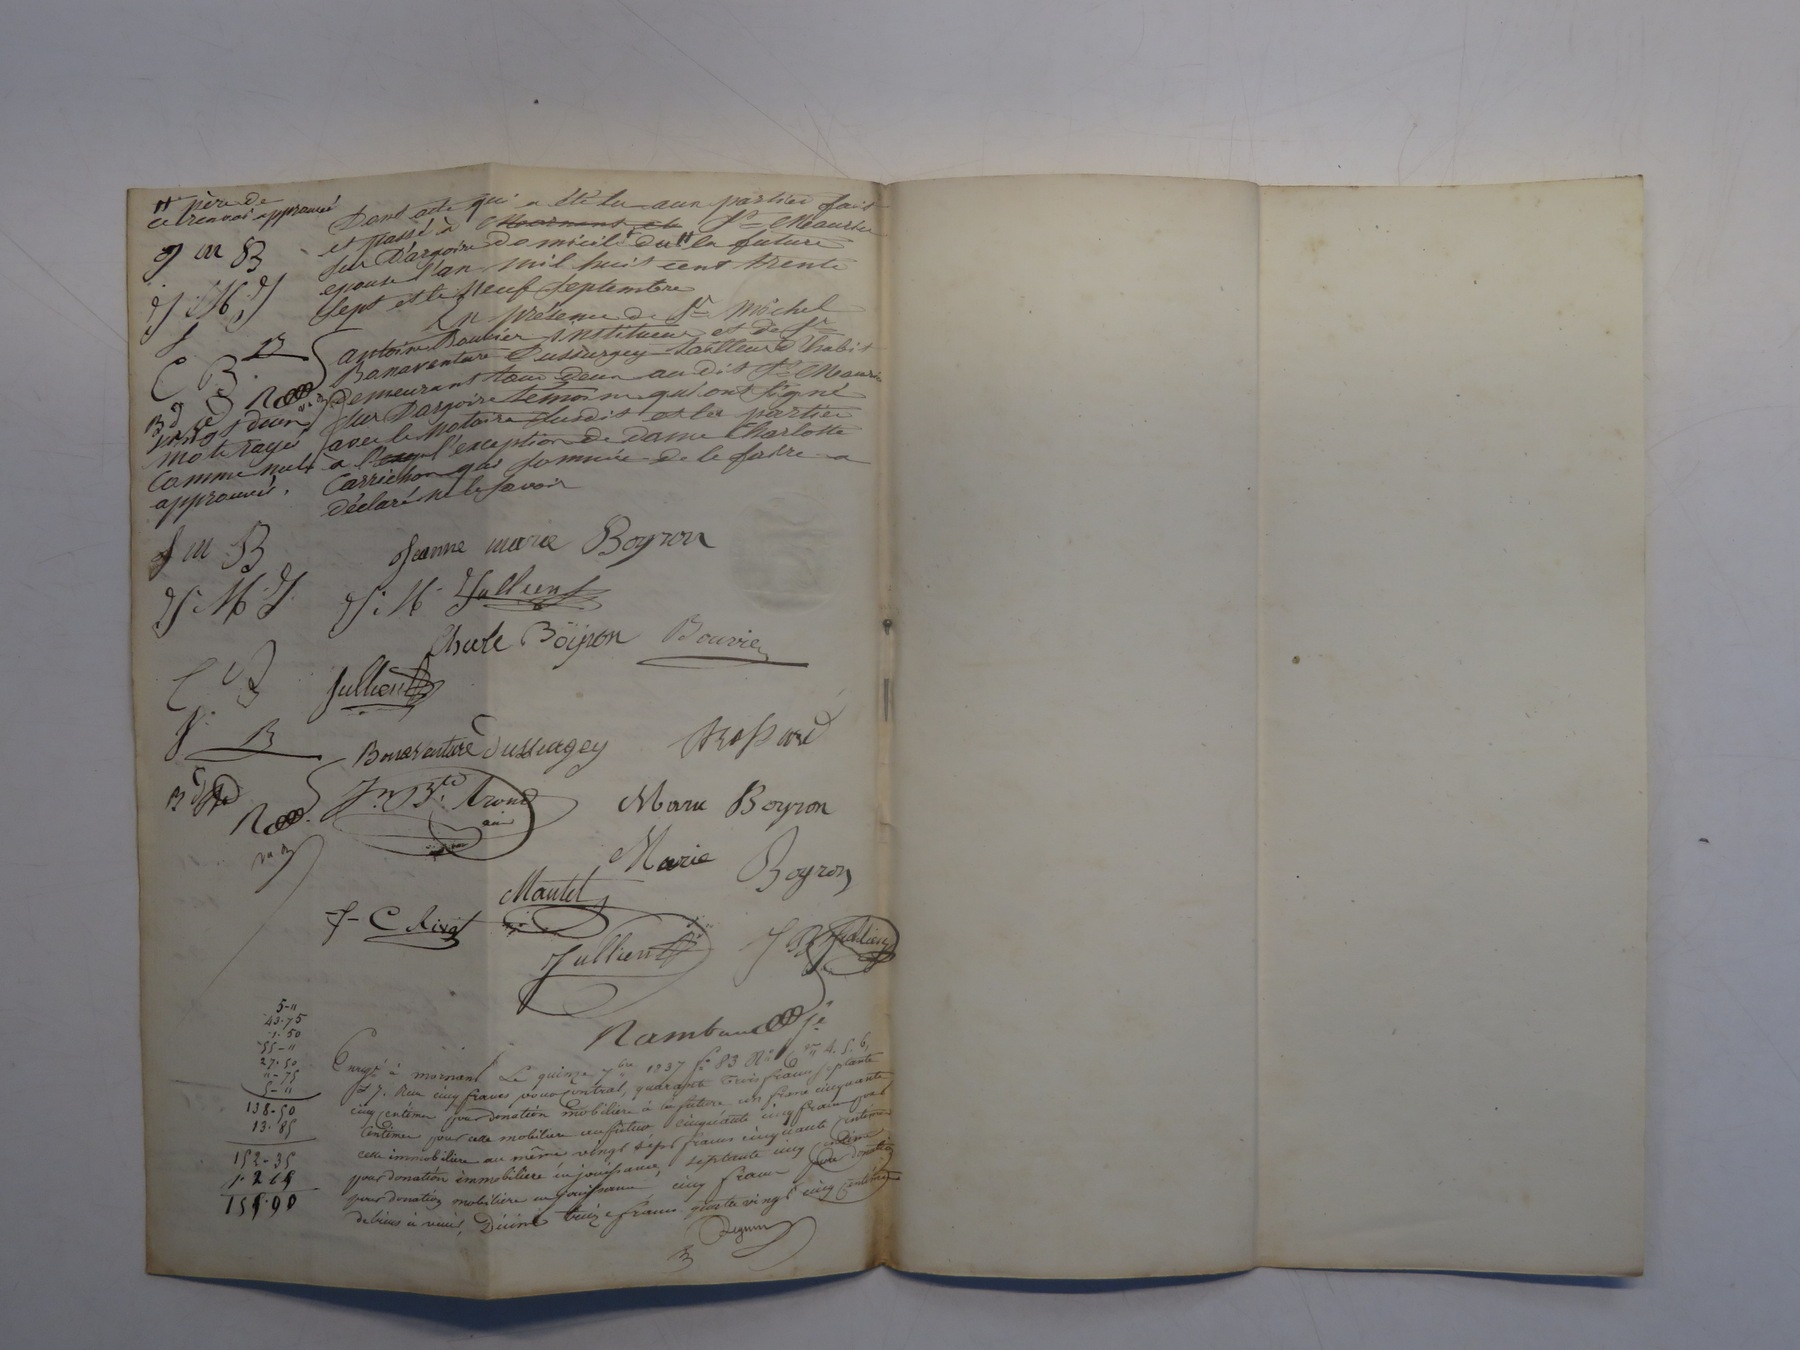 " père de
ce renvoi approuvé
J M B
J. M. J
J
B
C B.
B d
vingt deux
mots rayés
comme nuls
approuvés.
Dont acte qui a été lu aux parties fait
et passé à Mornant et St Maurice
sur Dargoire domicile du " la future
epouse l'an mil huit cent trente
sept et le Neuf Septembre
En présence de Sr Michel
antoine Bouvier instituteur et de Sr
Bonaventure Dussurgey tailleur d'habit
demeurant tous deux au dit St Maurice
sur Dargoire témoins qui ont signé
avec le Notaire susdit et les parties
a l' l'exception de dame Charlotte
Carrichon qui sommée de le faire a
déclaré ne le savoir
J M B
Jeanne marie Boyron
J. M. J.
J. M. Jullien
Boïron Bouvier
C B
Jullien
J. B
Bonaventure Dussurgey
B d
Jn Bte
Marie Boyron
Marie Boyron
Mantel
J- C Rivat
Jullien
J B Jullien
Rambaud
5-"
43-75
1-50
55-"
27-50
"-75
5-"
138-50
13-85
152-35
155-90
Enregé à mornant Le quinze 7bre 1837 fo 83 Ro Ces 4. 5. 6,
et 7. Reçu cinq francs pour contrat, quarante trois francs septante
cinq centimes pour donation mobilière à la future un franc cinquante
centimes pour celle mobilière au futur cinquante cinq francs pour
celle immobilière au même vingt sept francs cinquante centimes
pour donation immobilière en jouissance, septante cinq centimes
pour donation mobilière en jouissance cinq francs pour donation
de biens à venir, Décime treize francs quatre vingt cinq centimes